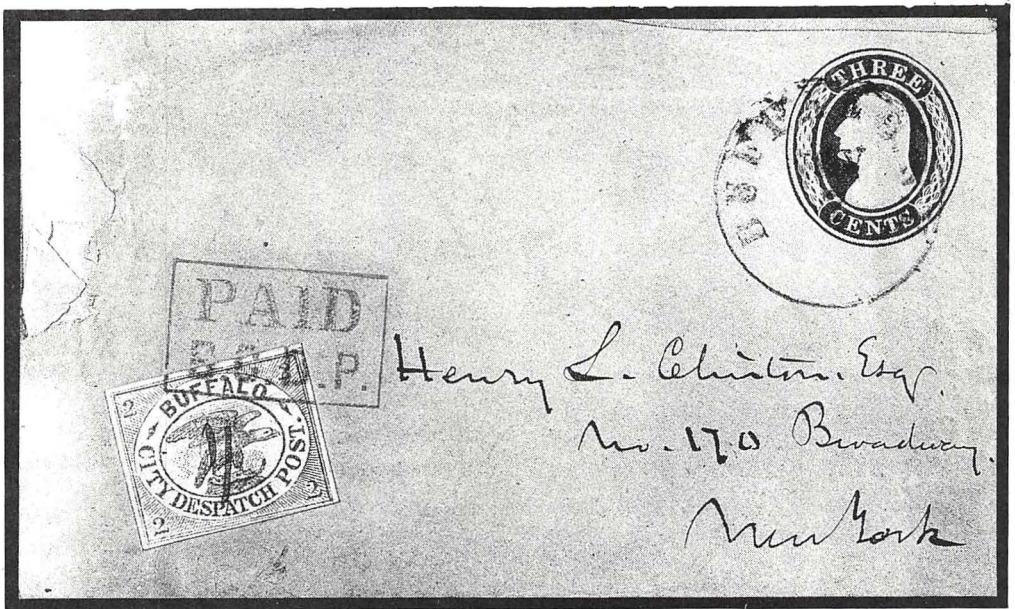 THREE
CENTS
BUF
PAID
B.C.D.P.
2 BUFFALO
CITY DESPATCH POST.
2
2
Henry L. Clinton. Esqr.
No. 170 Broadway.
New York